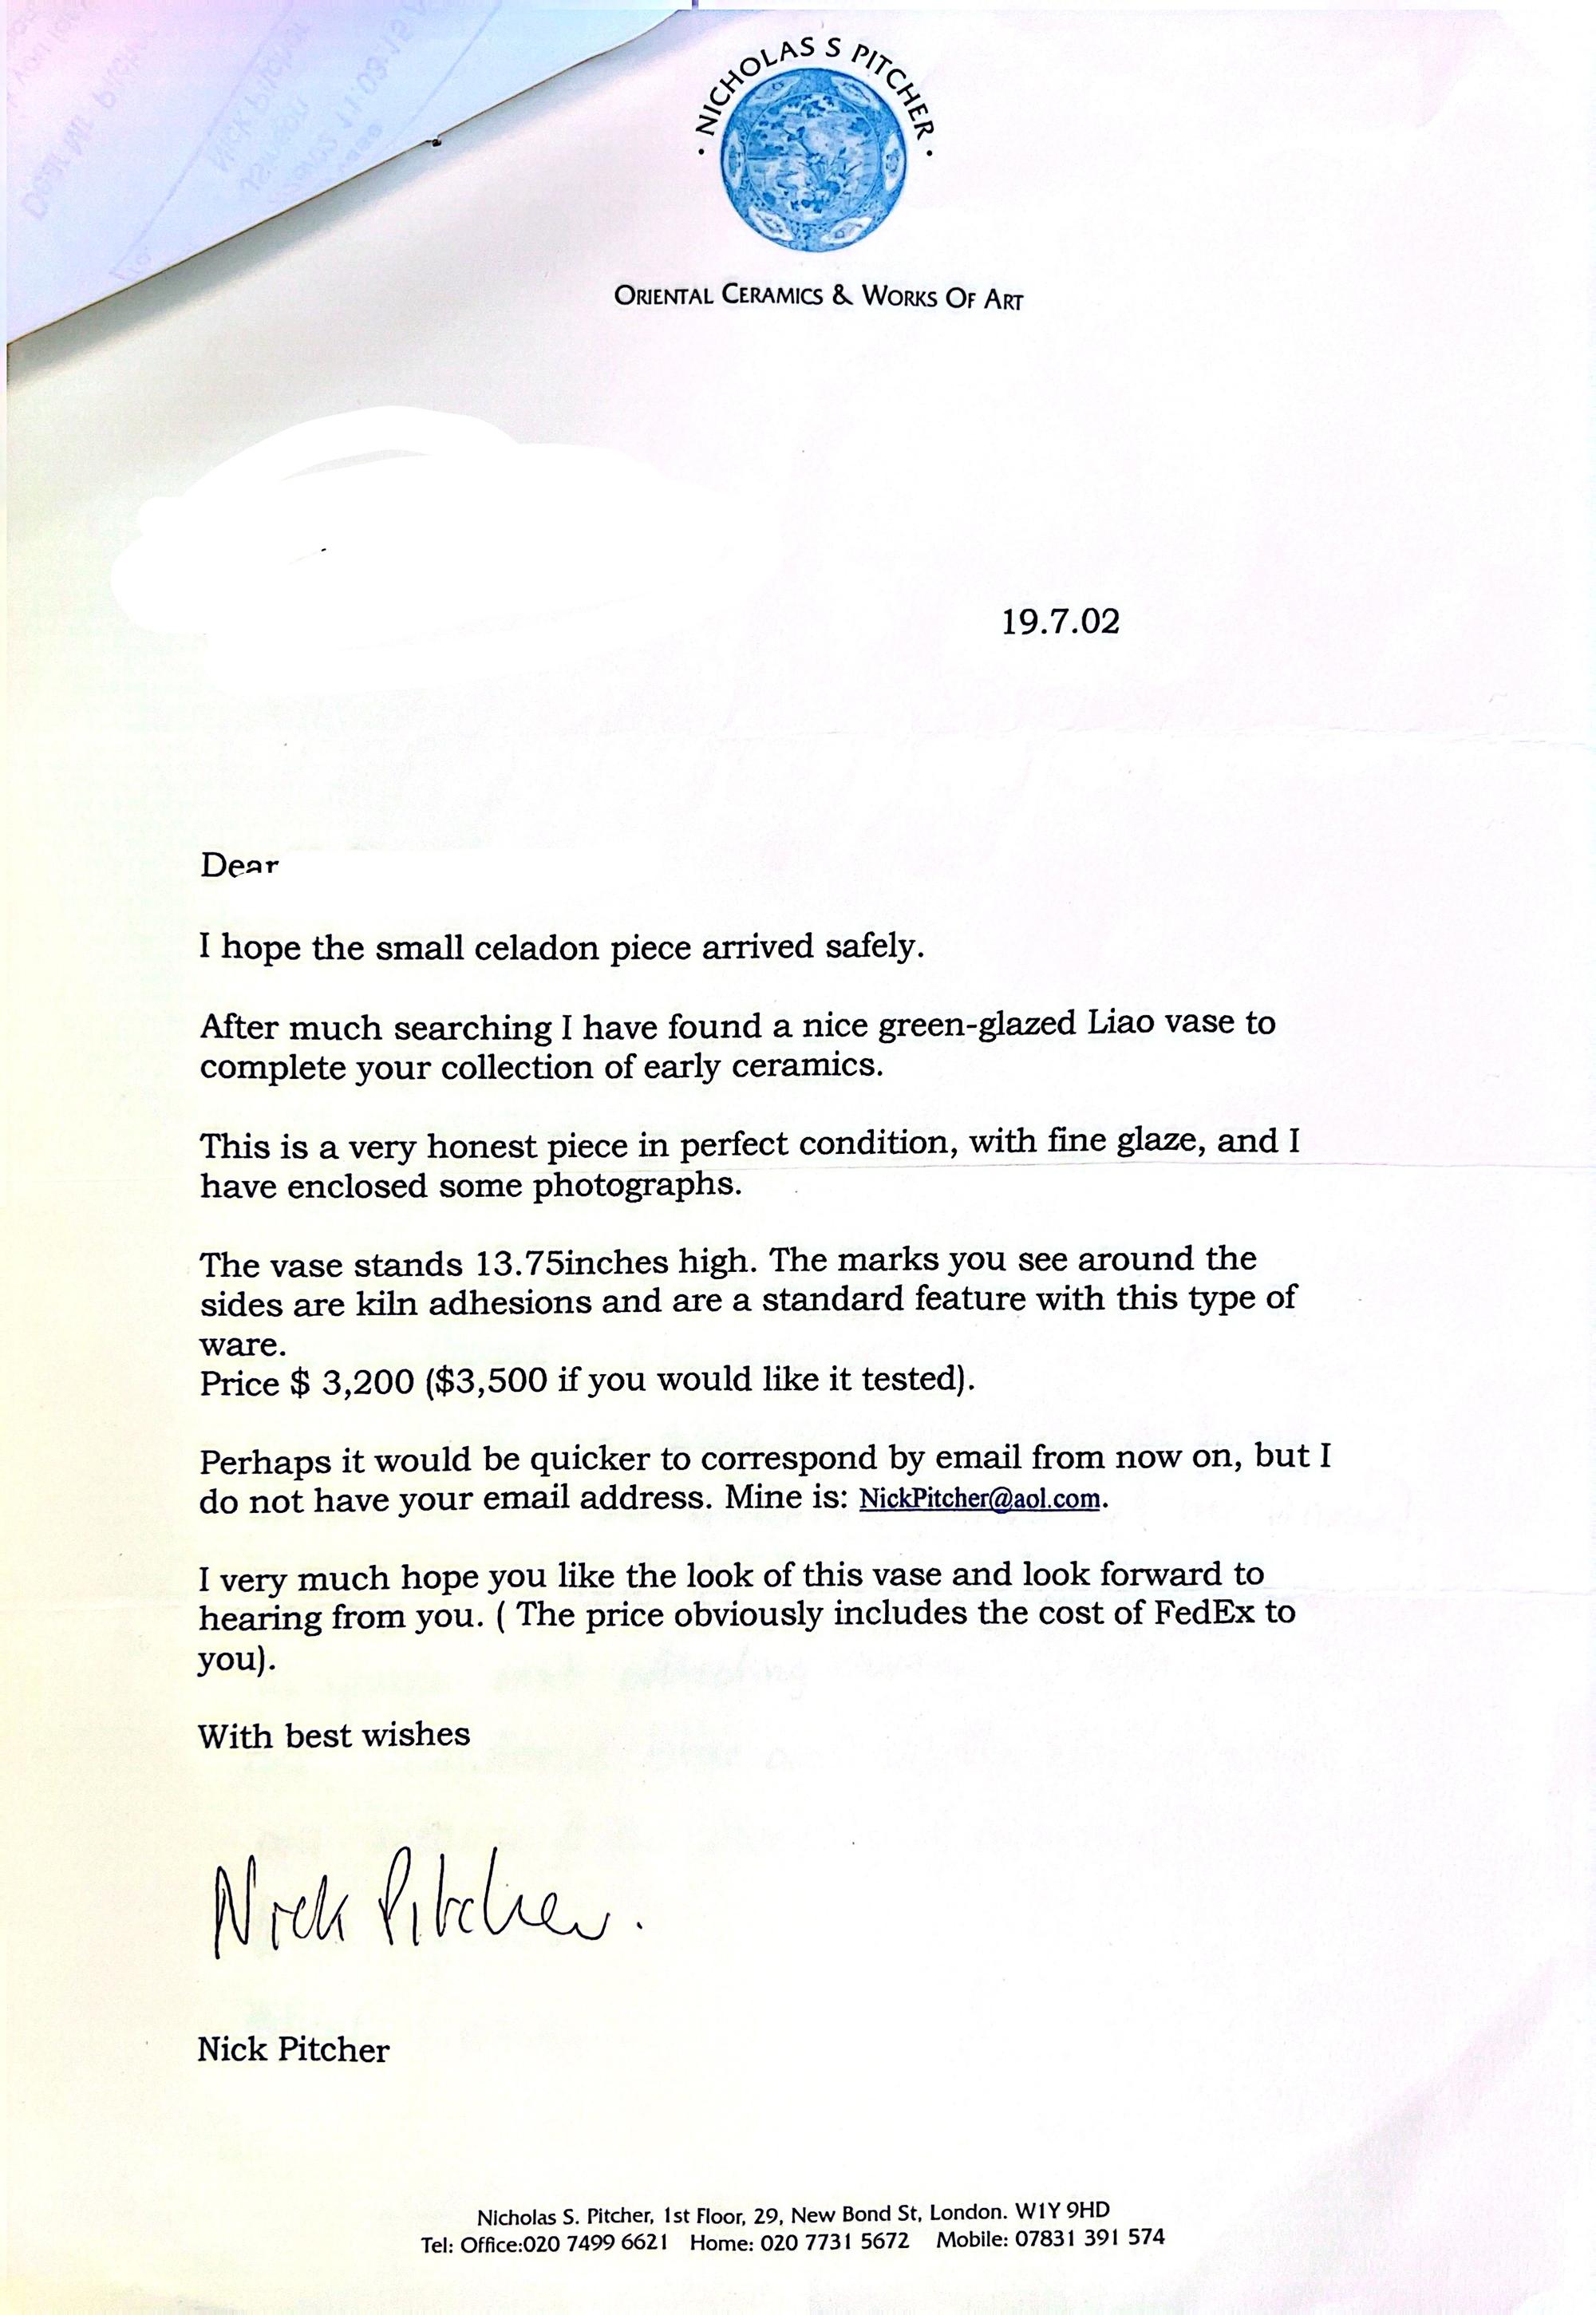 · NICHOLAS S PITCHER ·
ORIENTAL CERAMICS & WORKS OF ART
19.7.02
Dear
I hope the small celadon piece arrived safely.
After much searching I have found a nice green-glazed Liao vase to
complete your collection of early ceramics.
This is a very honest piece in perfect condition, with fine glaze, and I
have enclosed some photographs.
The vase stands 13.75inches high. The marks you see around the
sides are kiln adhesions and are a standard feature with this type of
ware.
Price $ 3,200 ($3,500 if you would like it tested).
Perhaps it would be quicker to correspond by email from now on, but I
do not have your email address. Mine is: NickPitcher@aol.com.
I very much hope you like the look of this vase and look forward to
hearing from you. ( The price obviously includes the cost of FedEx to
you).
With best wishes
Nick Pitcher.
Nick Pitcher
Nicholas S. Pitcher, 1st Floor, 29, New Bond St, London. W1Y 9HD
Tel: Office:020 7499 6621 Home: 020 7731 5672 Mobile: 07831 391 574